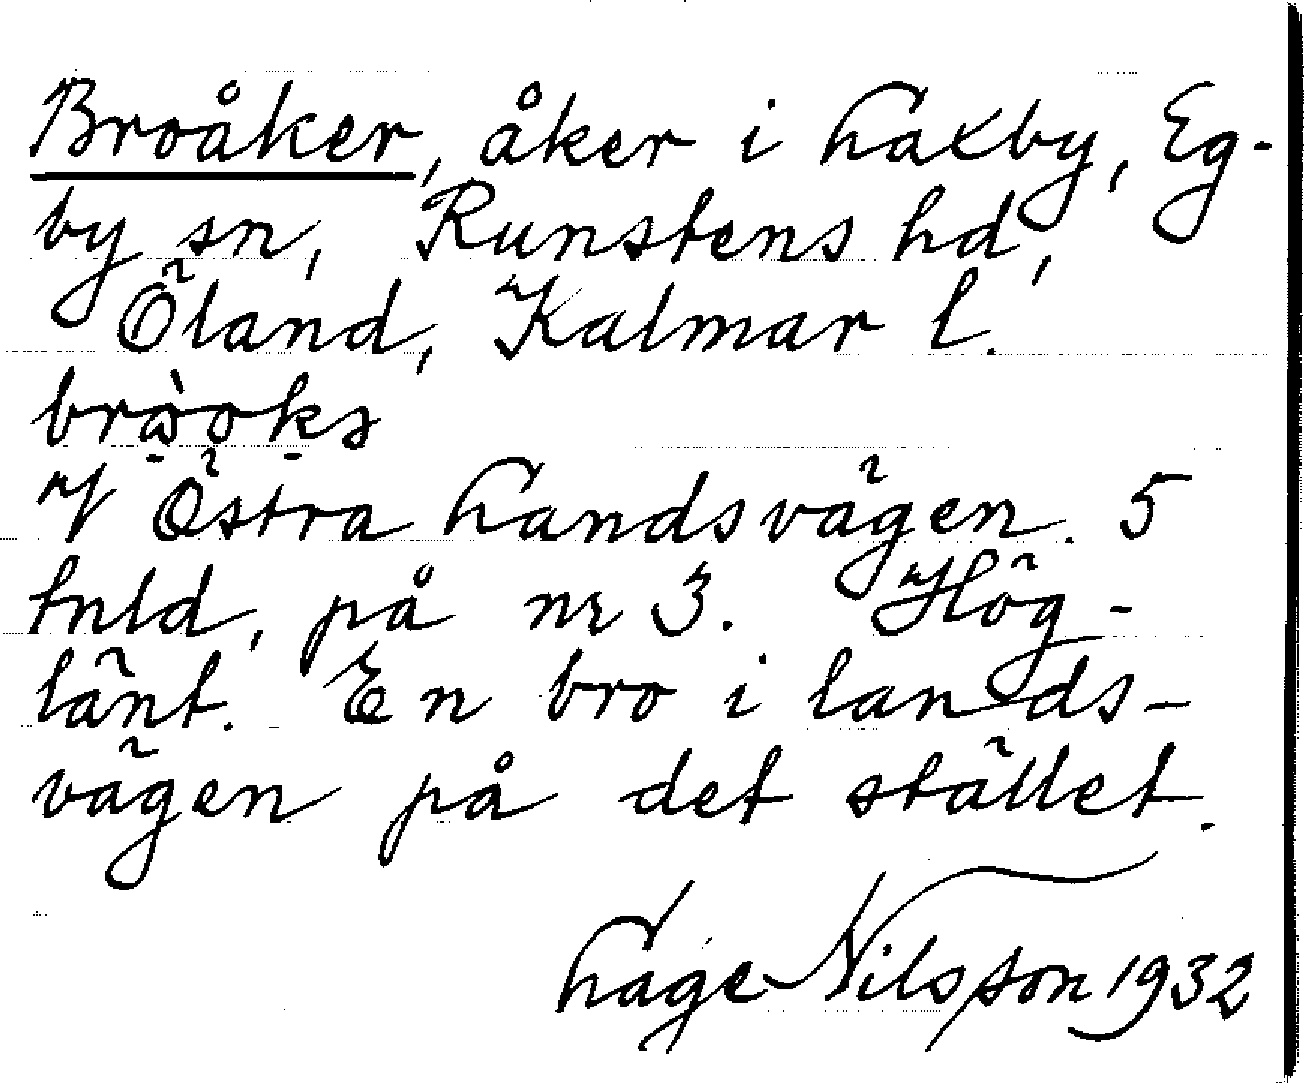 Broåker, åker i Laxby, Eg-
by sn, Runstens hd,
Öland, Kalmar l.
V Östra Landsvägen. 5
tnld, på nr 3. Hög-
länt. En bro i lands-
vägen på det stället.
Lage Nilsson 1932